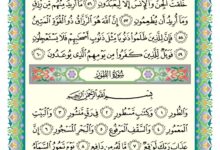 خَلَقْتُ الْجِنَّ وَالْإِنسَ إِلَّا لِيَعْبُدُونِ ﴿٥٦﴾ مَا أُرِيدُ مِنْهُم مِّن رِّزْقٍ
وَمَا أُرِيدُ أَن يُطْعِمُونِ ﴿٥٧﴾ إِنَّ اللَّهَ هُوَ الرَّزَّاقُ ذُو الْقُوَّةِ الْمَتِينُ
﴿٥٨﴾ فَإِنَّ لِلَّذِينَ ظَلَمُوا ذَنُوبًا مِّثْلَ ذَنُوبِ أَصْحَابِهِمْ فَلَا يَسْتَعْجِلُونِ
﴿٥٩﴾ فَوَيْلٌ لِّلَّذِينَ كَفَرُوا مِن يَوْمِهِمُ الَّذِي يُوعَدُونَ ﴿٦٠﴾
سُورَةُ الطُّورِ
بِسْمِ اللَّهِ الرَّحْمَٰنِ الرَّحِيمِ
وَالطُّورِ ﴿١﴾ وَكِتَابٍ مَّسْطُورٍ ﴿٢﴾ فِي رَقٍّ مَّنشُورٍ ﴿٣﴾ وَالْبَيْتِ
الْمَعْمُورِ ﴿٤﴾ وَالسَّقْفِ الْمَرْفُوعِ ﴿٥﴾ وَالْبَحْرِ الْمَسْجُورِ ﴿٦﴾ إِنَّ